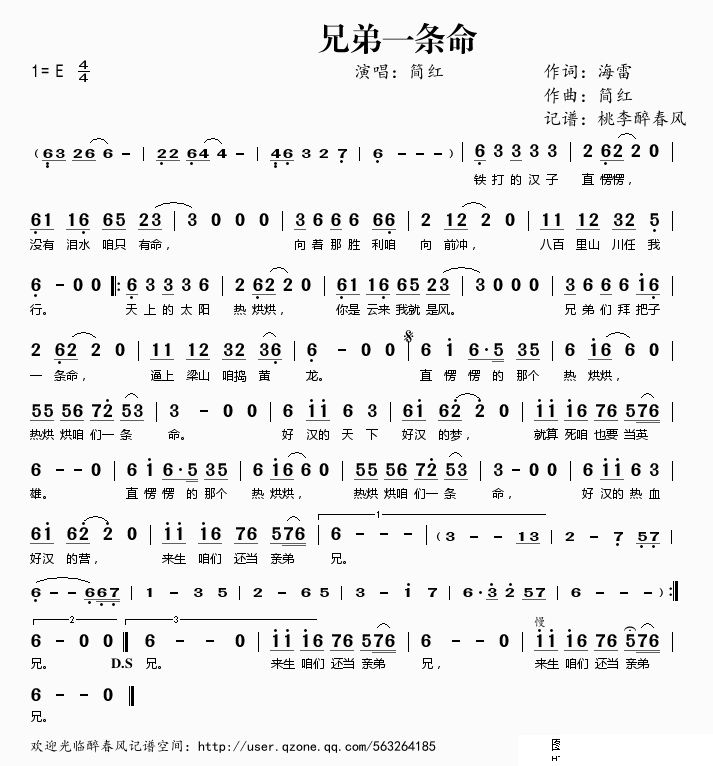 兄弟一条命
1= E 4/4 演唱：简红 作词：海雷
作曲：简红
记谱：桃李醉春风
(63 26 6 - | 22 64 4 - | 46 3 2 7 | 6 - - -) | 6 3 3 3 3 | 2 62 2 0 |
铁 打 的 汉 子 直 愣愣，
61 16 65 23 | 3 0 0 0 | 3 6 6 6 66 | 2 12 2 0 | 11 12 32 5 |
没有 泪水 咱只 有命， 向 着 那 胜 利咱 向 前冲， 八百 里山 川任 我
6 - 0 0 ‖: 6 3 3 3 6 | 2 62 2 0 | 61 16 65 23 | 3 0 0 0 | 3 6 6 6 16 |
行。 天 上 的 太 阳 热 烘烘， 你是 云来 我就 是风。 兄 弟 们 拜 把子
2 62 2 0 | 11 12 32 36 | 6 - 0 0 | 6 i 6·5 35 | 6 i6 6 0 |
一 条命， 逼上 梁山 咱捣 黄 龙。 直 愣 愣 的 那个 热 烘烘，
55 56 72 53 | 3 - 0 0 | 6 ii 6 3 | 6i 62 2 0 | ii i6 76 576 |
热烘 烘咱 们一 条 命。 好 汉的 天 下 好汉 的梦， 就算 死咱 也要 当英
6 - - 0 | 6 i 6·5 35 | 6 i6 6 0 | 55 56 72 53 | 3 - 0 0 | 6 ii 6 3 |
雄。 直 愣 愣 的 那个 热 烘烘， 热烘 烘咱 们一 条 命， 好 汉的 热 血
6i 62 2 0 | ii i6 76 576 | 1 6 - - - | (3 - - 13 | 2 - 7 57 |
好汉 的营， 来生 咱们 还当 亲弟 兄。
6 - - 667 | 1 - 3 5 | 2 - 6 5 | 3 - i 7 | 6·3 2 57 | 6 - - -) :‖
2 6 - 0 0 ‖ 3 6 - - 0 | ii i6 76 576 | 6 - - 0 | 慢 ii i6 76 576 |
兄。 D.S 兄。 来生 咱们 还当 亲弟 兄， 来生 咱们 还当 亲弟
6 - - 0 ‖
兄。
欢迎光临醉春风记谱空间：http://user.qzone.qq.com/563264185